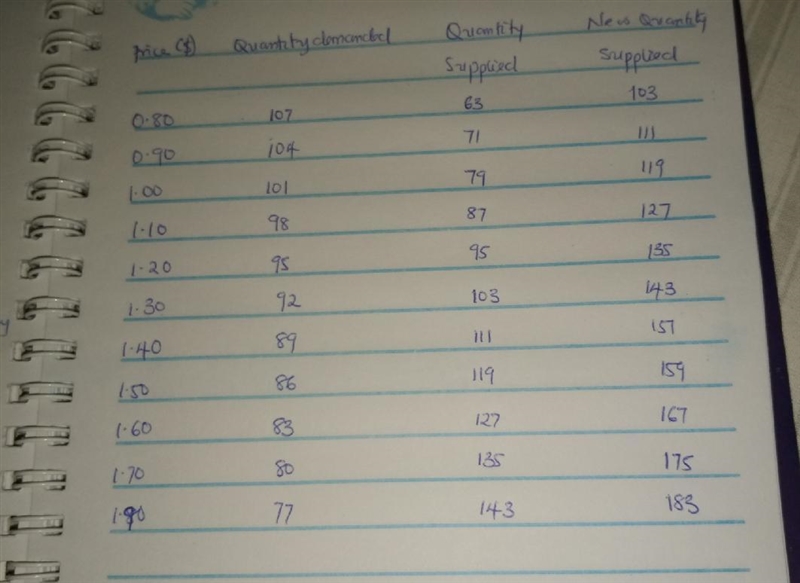 Price ($) Quantity demanded Quantity New Quantity
Supplied Supplied
0.80 107 63 103
0.90 104 71 111
1.00 101 79 119
1.10 98 87 127
1.20 95 95 135
1.30 92 103 143
1.40 89 111 151
1.50 86 119 159
1.60 83 127 167
1.70 80 135 175
1.90 77 143 183